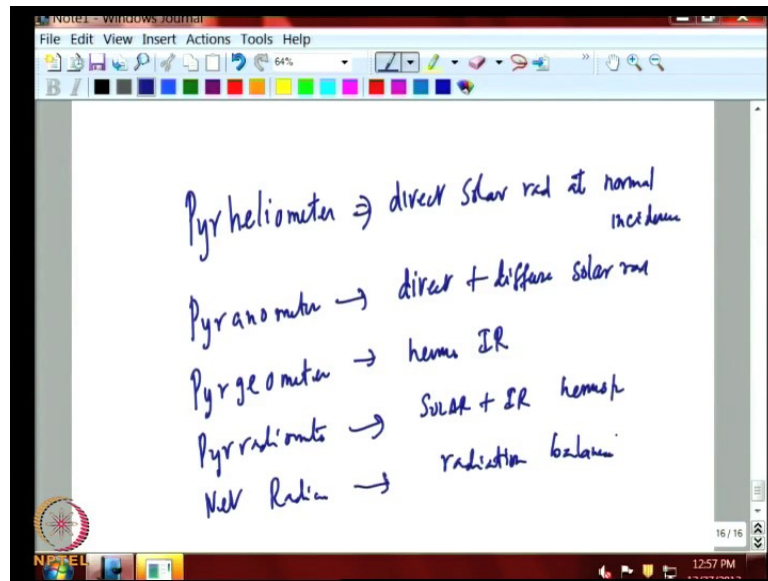 Note1 - Windows Journal
File Edit View Insert Actions Tools Help
64%
B I
Pyrheliometer ⇒ direct solar rad at normal
incidence
Pyranometer → direct + diffuse solar rad
Pyrgeometer → hemis IR
Pyrradiomto → SOLAR + IR hemisp
Net Radia → radiation balance
16 / 16
NPTEL
12:57 PM